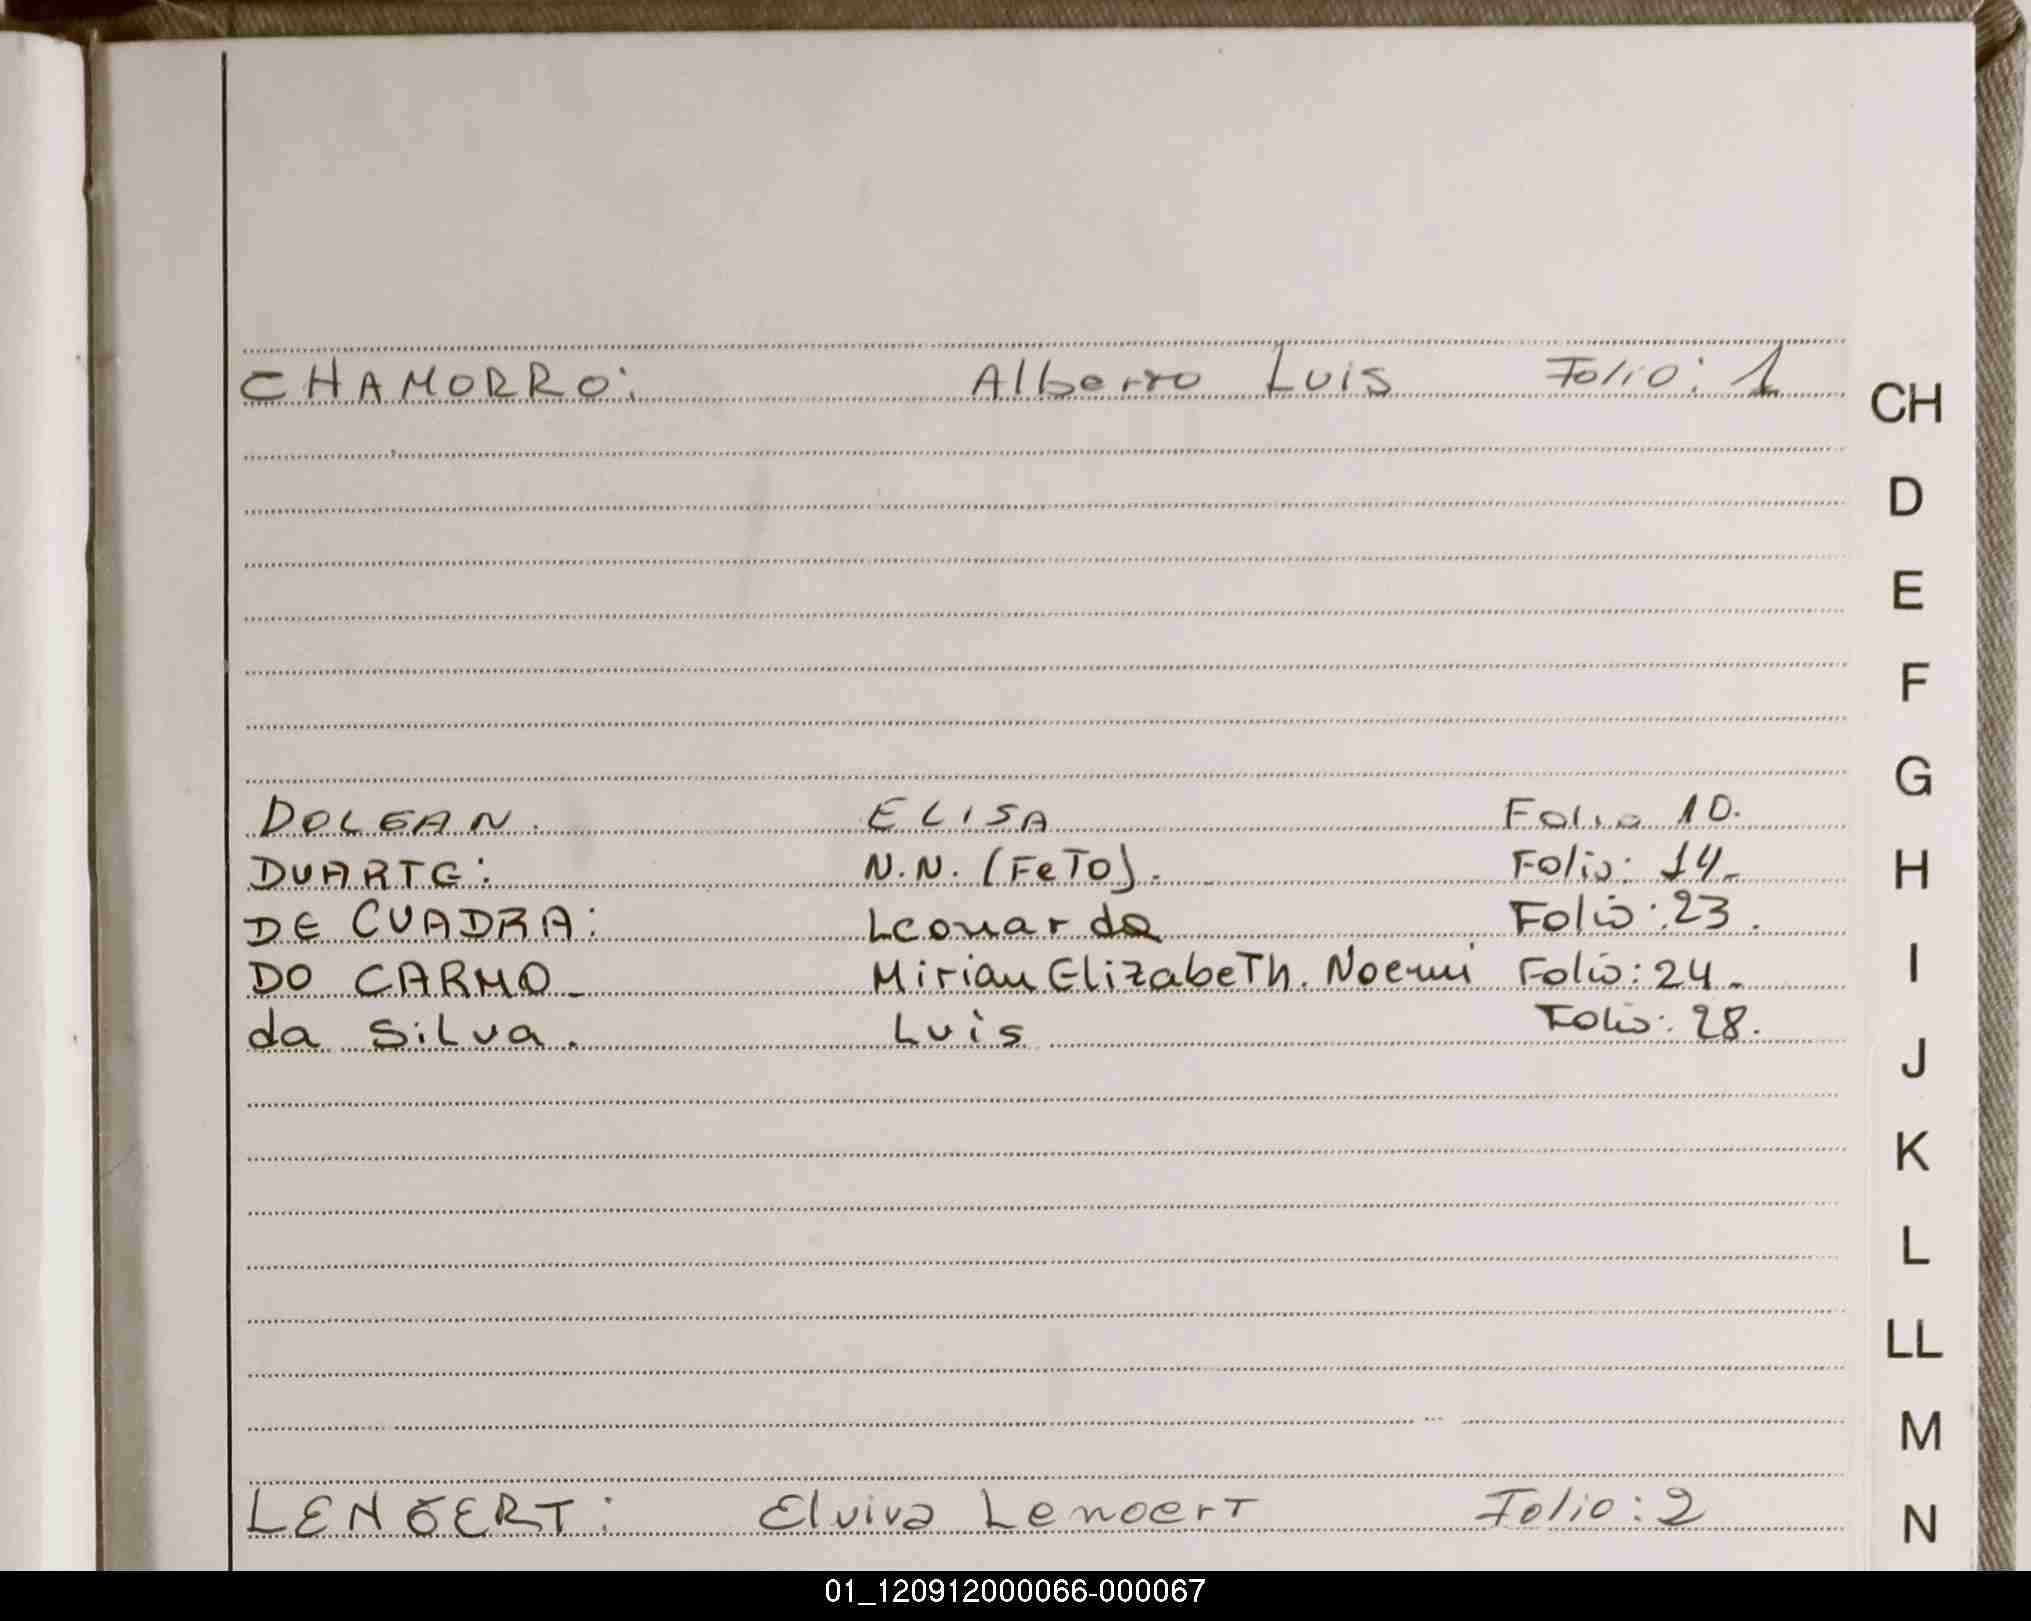 CHAMORRO: Alberto Luis Folio: 1
DOLGAN. ELISA Folio 10.
DUARTE: N.N. (FeTO). Folio: 14-
DE CUADRA: Leonarda Folio: 23.
DO CARMO - Mirian ElizabeTh. Noemi Folio: 24-
da SiLva. Luis Folio: 28.
Elvira Folio: 2
CH
D
E
F
G
H
I
J
K
L
LL
M
N
01_120912000066-000067